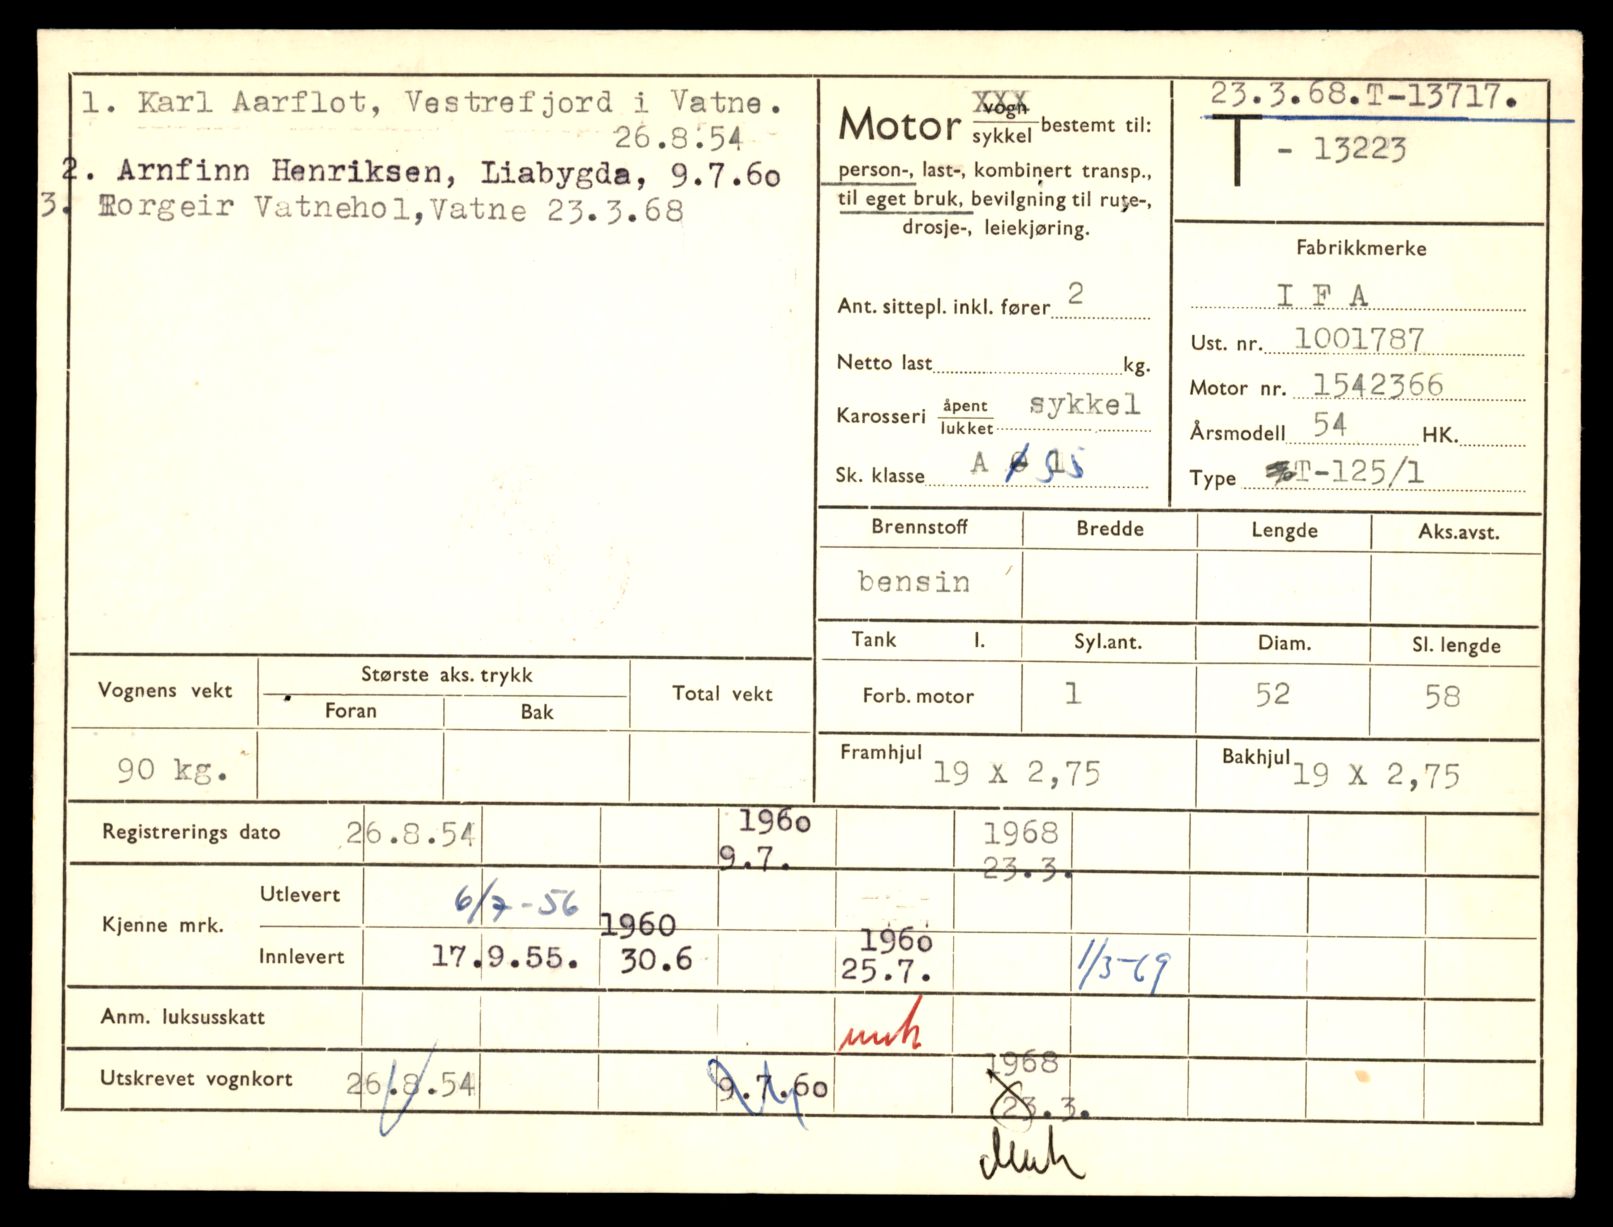 1. Karl Aarflot, Vestrefjord i Vatne.
26.8.54
2. Arnfinn Henriksen, Liabygda, 9.7.60
3. Torgeir Vatnehol, Vatne 23.3.68
Motor vogn XXX / sykkel bestemt til:
person-, last-, kombinert transp.,
til eget bruk, bevilgning til rute-,
drosje-, leiekjøring.
Ant. sittepl. inkl. fører 2
Netto last kg.
Karosseri åpent / lukket sykkel
Sk. klasse A
23.3.68.T-13717.
T - 13223
Fabrikkmerke
I F A
Ust. nr. 1001787
Motor nr. 1542366
Årsmodell 54 HK.
Type T-125/1
Brennstoff Bredde Lengde Aks.avst.
bensin
Tank l. Syl.ant. Diam. Sl. lengde
Forb. motor 1 52 58
Framhjul 19 X 2,75 Bakhjul 19 X 2,75
Vognens vekt Største aks. trykk Total vekt
Foran Bak
90 kg.
Registrerings dato 26.8.54 1960 9.7. 1968 23.3.
Kjenne mrk.
Utlevert 6/7-56
Innlevert 17.9.55. 1960 30.6 1960 25.7. 1/3-69
Anm. luksusskatt
Utskrevet vognkort 26.8.54 9.7.60 1968 23.3.